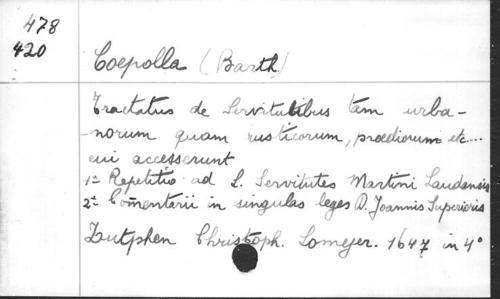 478
420
Coepolla (Barth)
Tractatus de Servitutibus tam urba-
-norum quam rusticorum, praediorum etc....
cui accesserunt
1º Repetitio ad L. Servitutes Martini Laudensis
2º Com̄entarii in singulas leges D. Joannis Superioris
Zutphen Christoph. Lomejer. 1647 in 4º